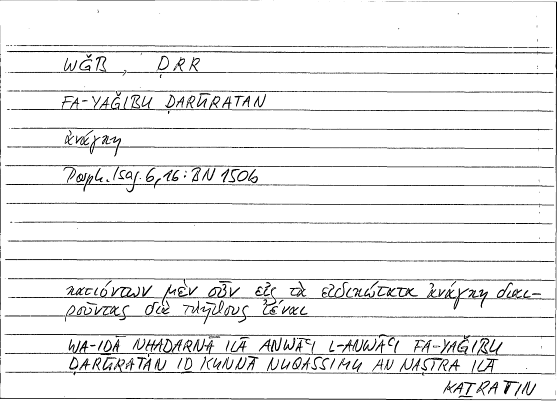 WĞB, ḌRR
FA-YAĞIBU ḌARŪRATAN
ἀνάγκη
Porph. Isag. 6,16: BN 150b
κατιόντων μὲν οὖν εἰς τὰ εἰδικώτατα ἀνάγκη διαι-
ροῦντας διὰ πλήθους ἰέναι
WA-IḎĀ NḤADARNĀ ILĀ ANWĀʿI L-ANWĀʿI FA-YAĞIBU
ḌARŪRATAN IḎ KUNNĀ NUQASSIMU AN NAṢĪRA ILĀ
KAṮRATIN